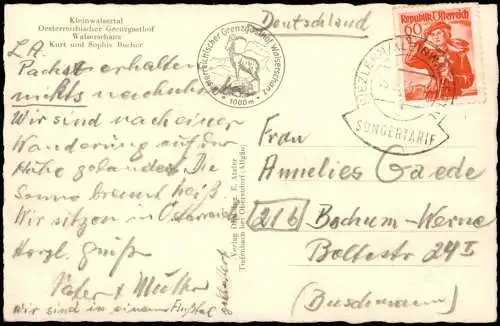 Kleinwalsertal
Oesterreichischer Grenzgasthof
Walserschanz
Kurt und Sophie Bischof
Deutschland
Oesterreichischer Grenzgasthof Walserschanz
1000 m
Republik Österreich
60
RIEZLERN
SONDERTARIF
L. A.
Packet erhalten
nichts nachsenden
Wir sind nach einer
Wanderung auf der
Hütte gelandet. Die
Sonne brennt heiß.
Wir sitzen in Österreich
Herzl. Grüße
Vater + Mutter
Wir sind in einem
Verlag E. Atzler
Tiefenbach bei Oberstdorf (Allgäu)
Frau
Annelies Gaede
21b Bochum-Werne
Boltestr 24 I
(Buschmann)